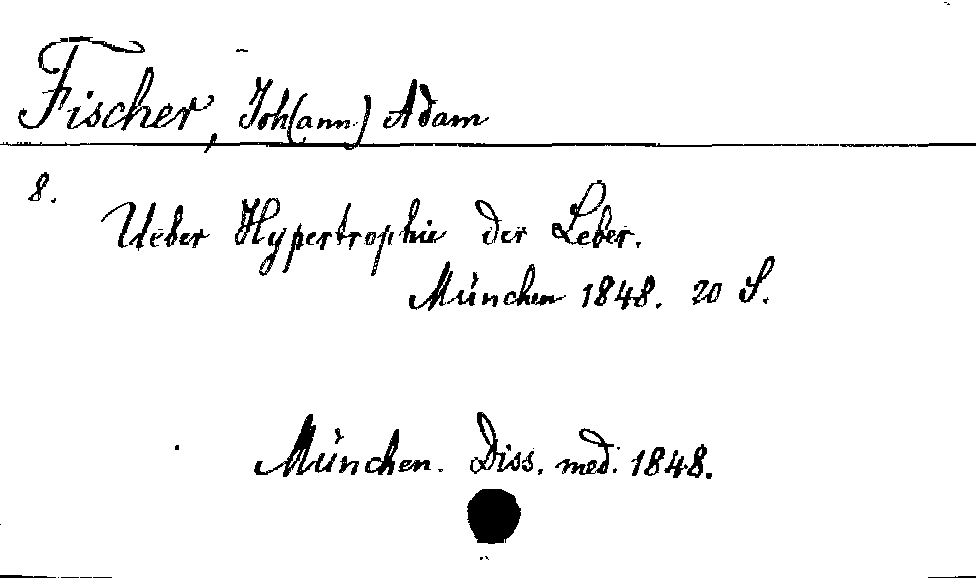 Fischer, Joh(ann) Adam
8.
Ueber Hypertrophie der Leber.
München 1848. 20 S.
München. Diss. med. 1848.